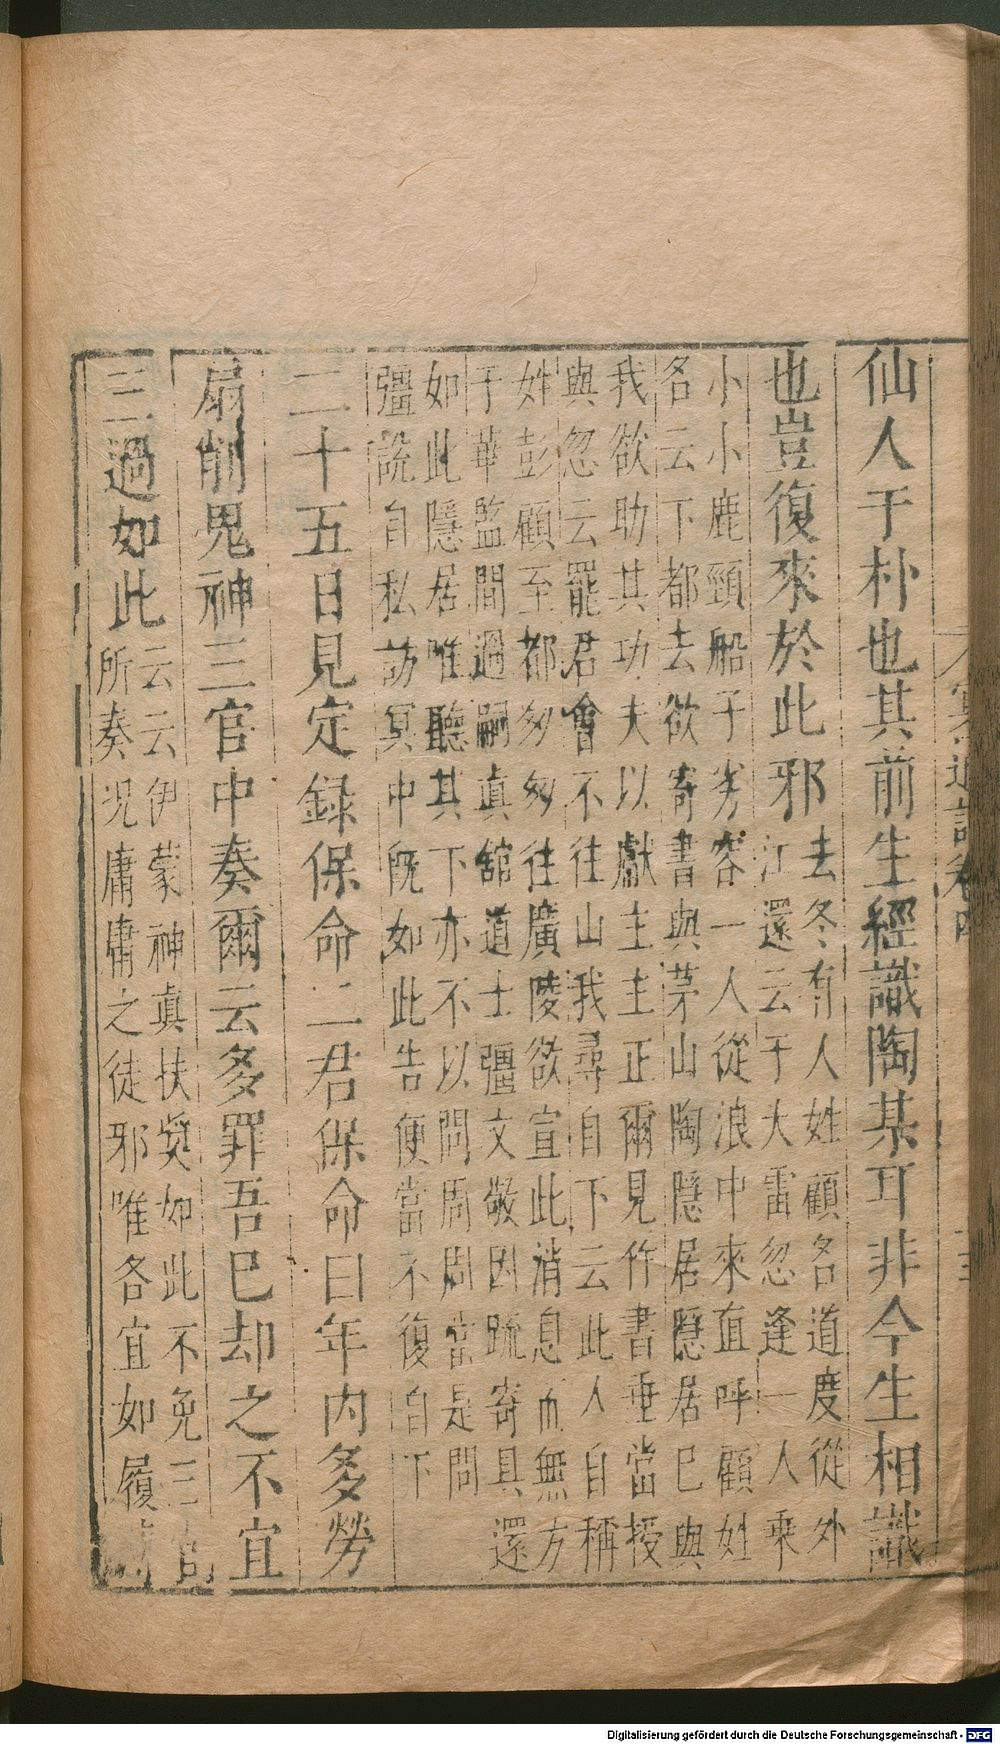 仙人于朴也其前生經識陶某耳非今生相識
也豈復來於此邪
去冬有人姓顧名道度從外
江還云于大雷忽逢一人乘
小小鹿頸船子劣容一人從浪中來直呼顧姓
名云下都去欲寄書與茅山陶隱居隱居巳與
我欲助其功夫以獻主主正爾見作書垂當授
與忽云罷君會不往山我尋自下云此人自稱
姓彭顧至都匆匆往廣陵欲宣此消息而無方
于華監間過嗣眞舘道士彊文敬因疏寄具還
如此隱居唯聽其下亦不以問周周當是問
彊說自私訪冥中旣如此告便當不復自下
二十五日見定録保命二君保命曰年内多勞
扇削鬼神三官中奏爾云多罪吾巳却之不宜
三過如此
云云伊蒙神眞扶奬如此不免三官
所奏况庸庸之徒邪唯各宜如履
冥通記卷四